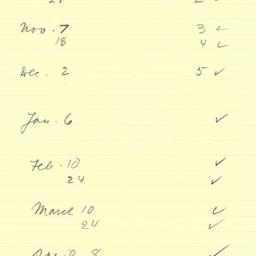 Nov. 7 3 ✓
18 4 ✓
Dec. 2 5 ✓
Jan. 6 ✓
Feb. 10 ✓
24 ✓
March 10 ✓
24 ✓